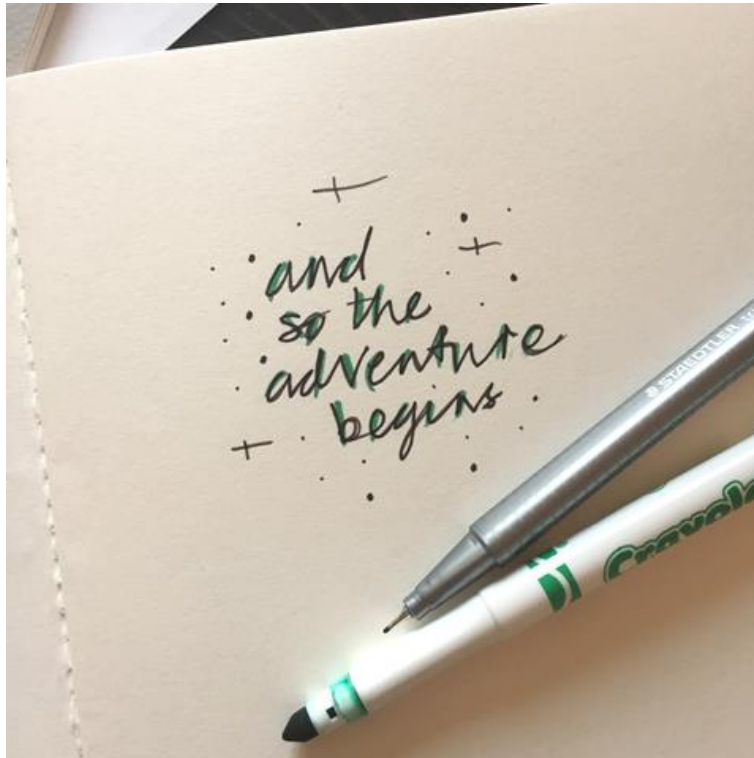 and
so the
adventure
begins
STAEDTLER
Crayola